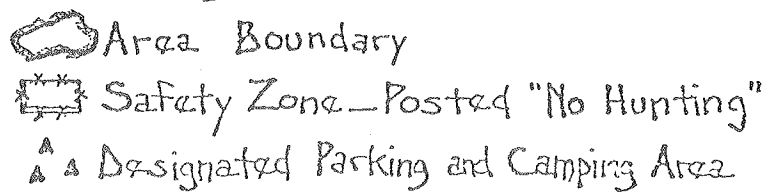 Area Boundary
Safety Zone—Posted "No Hunting"
Designated Parking and Camping Area